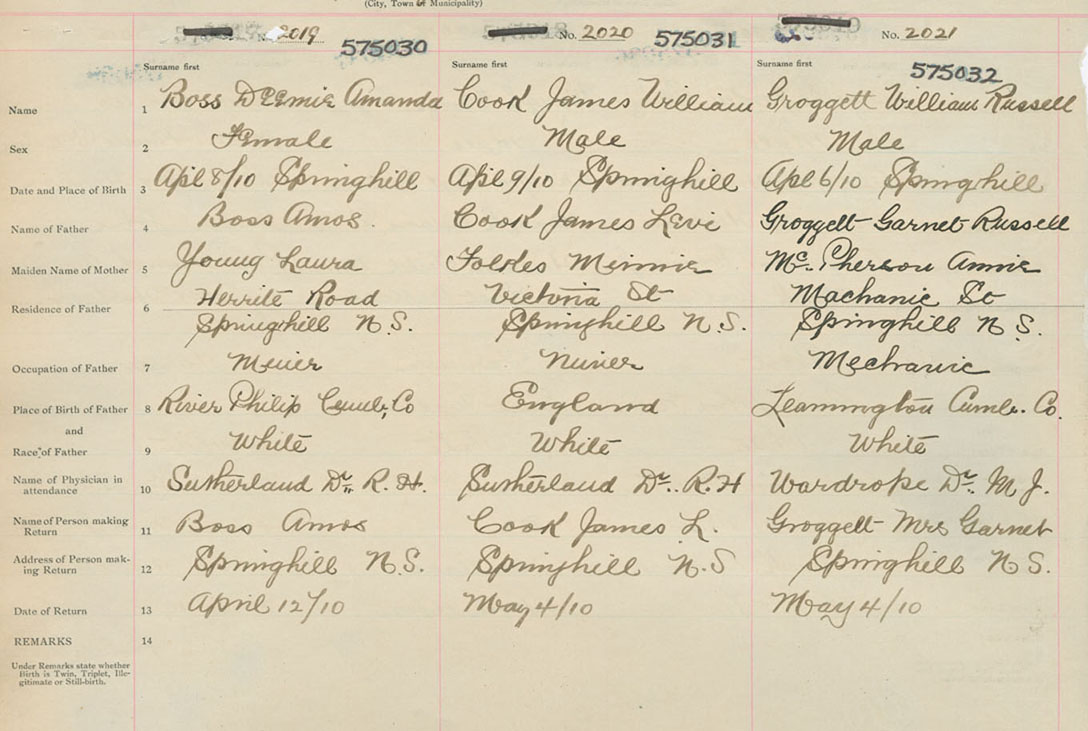 (City, Town or Municipality)
No. 2019 575030 No. 2020 575031 No. 2021 575032
Surname first Surname first Surname first
Name 1 Boss Amanda Cook James William Groggett William Russell
Sex 2 Female Male Male
Date and Place of Birth 3 Apl 8/10 Springhill Apl 9/10 Springhill Apl 6/10 Springhill
Name of Father 4 Boss Amos. Cook James Levi Groggett Garnet Russell
Maiden Name of Mother 5 Young Laura Minnie Mc. Pherson Annie
Residence of Father 6 Road Victoria St Machanic St
Springhill N.S. Springhill N.S. Springhill N S.
Occupation of Father 7 Miner Miner Mechanic
Place of Birth of Father 8 River Philip Cumb. Co England Leamington Cumb. Co.
and
Race of Father 9 White White White
Name of Physician in attendance 10 Sutherland Dr. R. H. Sutherland Dr. R. H Wardrope Dr. M J.
Name of Person making Return 11 Boss Amos Cook James L. Groggett Mrs Garnet
Address of Person making Return 12 Springhill N.S. Springhill N.S Springhill N S.
Date of Return 13 April 12/10 May 4/10 May 4/10
REMARKS 14
Under Remarks state whether
Birth is Twin, Triplet, Ille-
gitimate or Still-birth.